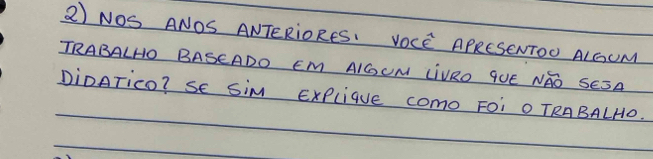 2) NOS ANOS ANTERIORES, VOCÊ APRESENTOU ALGUM
TRABALHO BASEADO EM ALGUM LIVRO QUE NÃO SEJA
DIDATICO? SE SIM EXPLIQUE COMO FOI O TRABALHO.